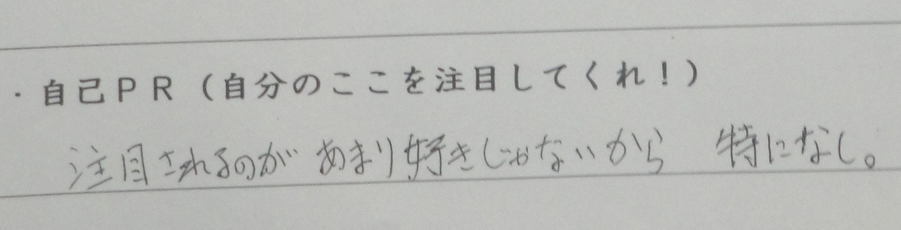 ・自己PR(自分のここを注目してくれ！)
注目されるのがあまり好きじゃないから 特になし。